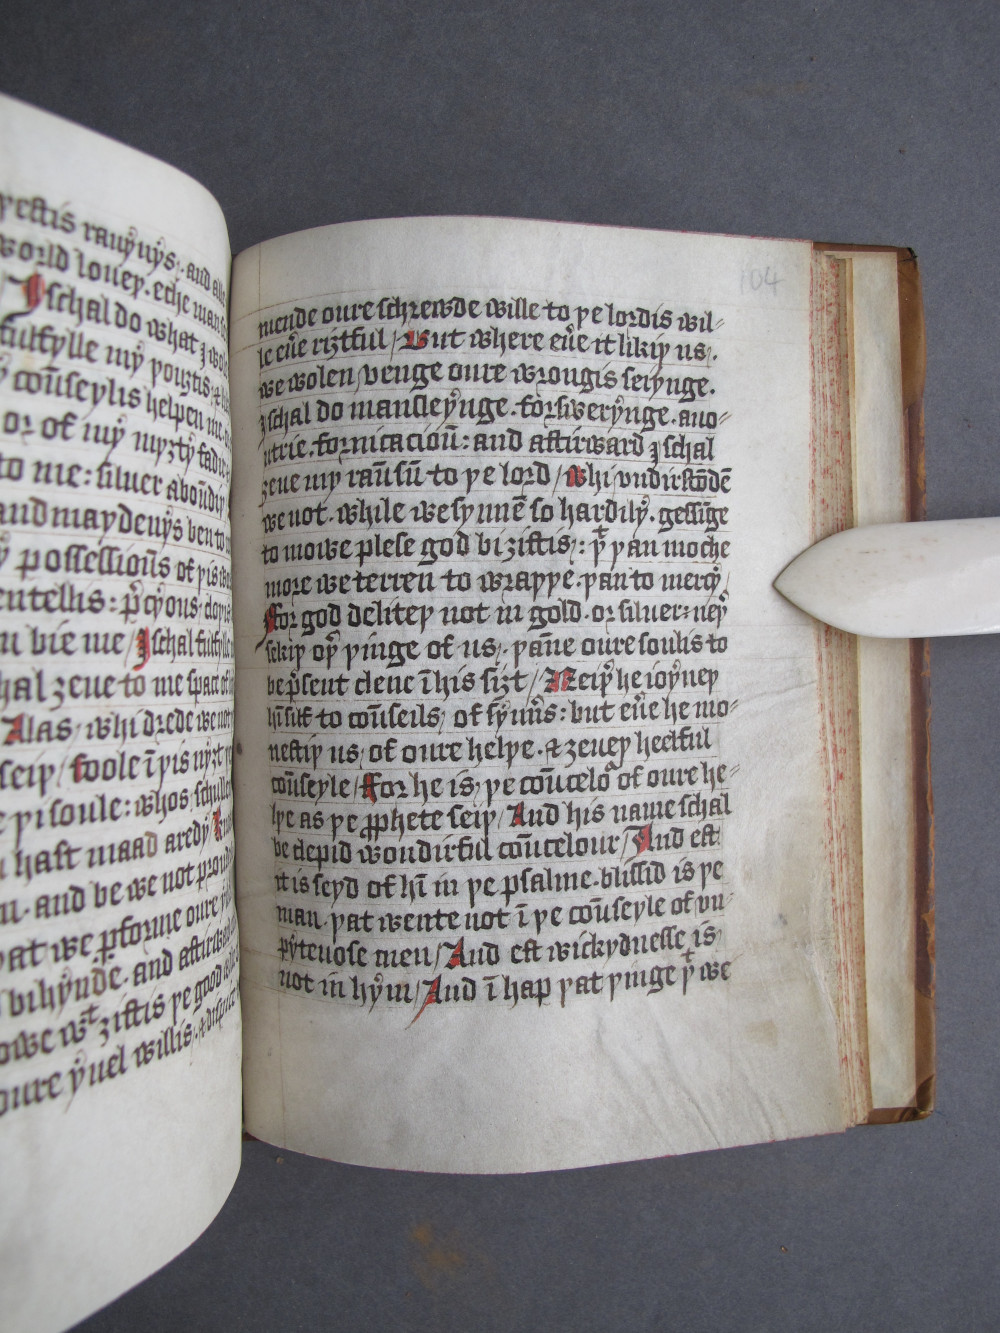 yeftis rauynys. and alle
world louey. eche man
I schal do what I wole
fulfylle my pouztis
couseylis helpen me
or of my myzty fadir
to me: siluer aboundiy
and maydenys ben to
possessiouns of yis
entellis: p̄cyous
bie me / I schal fulfylle
zeue to me space of
Alas, whi drede we not
seiy / foole ī yis nyzt
yi soule: whos, schullen
hast maad aredy
and be we not
yat we ꝑforme oure
bihynde. and aftirward
wt ziftis ye good
oure yuel willis,
104
mende oure schrewde wille to ye lordis wil⸗
le eue riztful / But where eue it likiy us,.
we wolen, venge oure wrongis seiynge.
I schal do mansleynge. forsweryinge. auo⸗
utrie. fornicacioū: and aftirward I schal
zeue my raūsū to ye lord / Whi vndirstōdē
we not. while we synnē so hardily. gessīge
to mowe plese god bi ziftis,: yt yan moche
more we terren to wrappe. yan to mercy,
ffor god delitey not in gold. or siluer: ney
sekiy oy yinge of us,. yāne oure soulis to
be p̄sent clene ī his sizt / Neiy he ioyney
hī silf to coūseils, of synn̄s: but eue he mo⸗
nestiy us, of oure helpe. & zeuey heelful
coūseyle / For he is, ye coūcelor of oure he⸗
lpe as ye ꝓphete seiy / And his name schal
be clepid wondirful coūcelour / And eft
it is seyd of hī in ye psalme. blissid is ye
man. yat wente not ī ye coūseyle of vn
pytenose men / And eft wickydnesse is,
not in hym / And ī hap yat yinge yt we